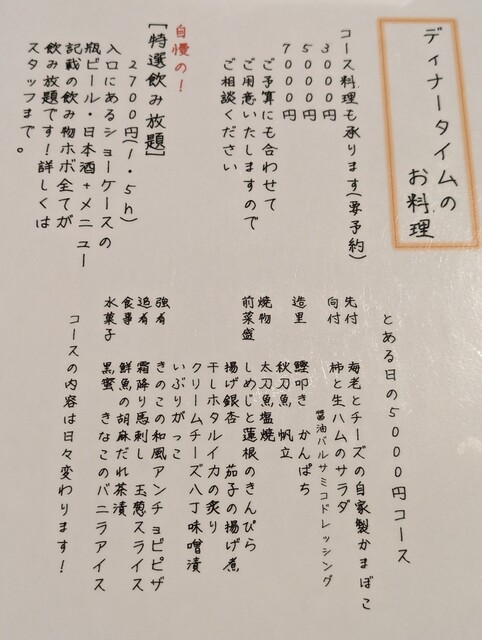 ディナータイムの
お料理
コース料理も承ります(要予約)
3000円
5000円
7000円
ご予算にも合わせて
ご用意いたしますので
ご相談ください
自慢の!
[特選飲み放題]
2700円(1.5h)
入口にあるショーケースの
瓶ビール・日本酒+メニュー
記載の飲み物ホボ全てが
飲み放題です!詳しくは
スタッフまで。
とある日の5000円コース
先付 海老とチーズの自家製かまぼこ
向付 柿と生ハムのサラダ
醤油バルサミコドレッシング
造里 鰹叩き かんぱち
秋刀魚 帆立
焼物 太刀魚塩焼
前菜盛 しめじと蓮根のきんぴら
揚げ銀杏 茄子の揚げ煮
干しホタルイカの炙り
クリームチーズ八丁味噌漬
いぶりがっこ
強肴 きのこの和風アンチョビピザ
追肴 霜降り馬刺し 玉葱スライス
食事 鮮魚の胡麻だれ茶漬
水菓子 黒蜜 きなこのバニラアイス
コースの内容は日々変わります!